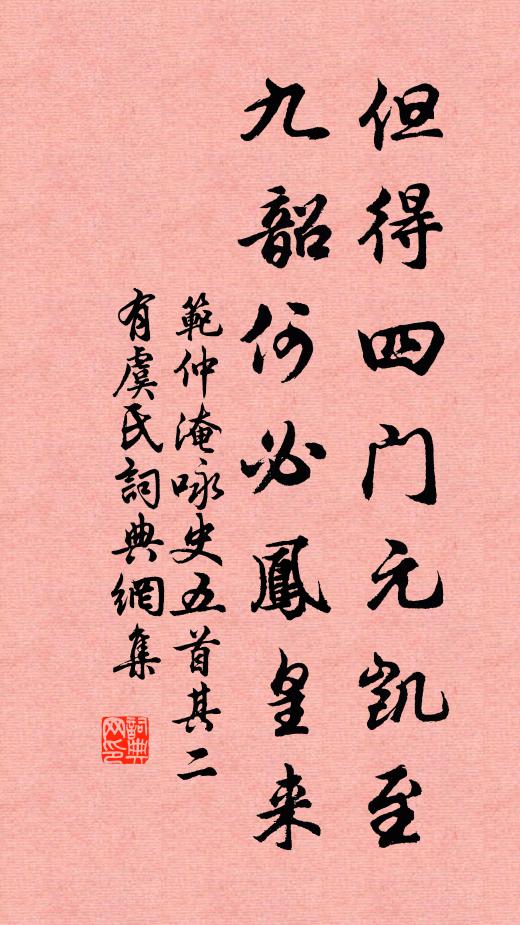 但得四门元凯至
九韶何必鳳皇来
範仲淹咏史五首其二
有虞氏詞典網集
詞典网印